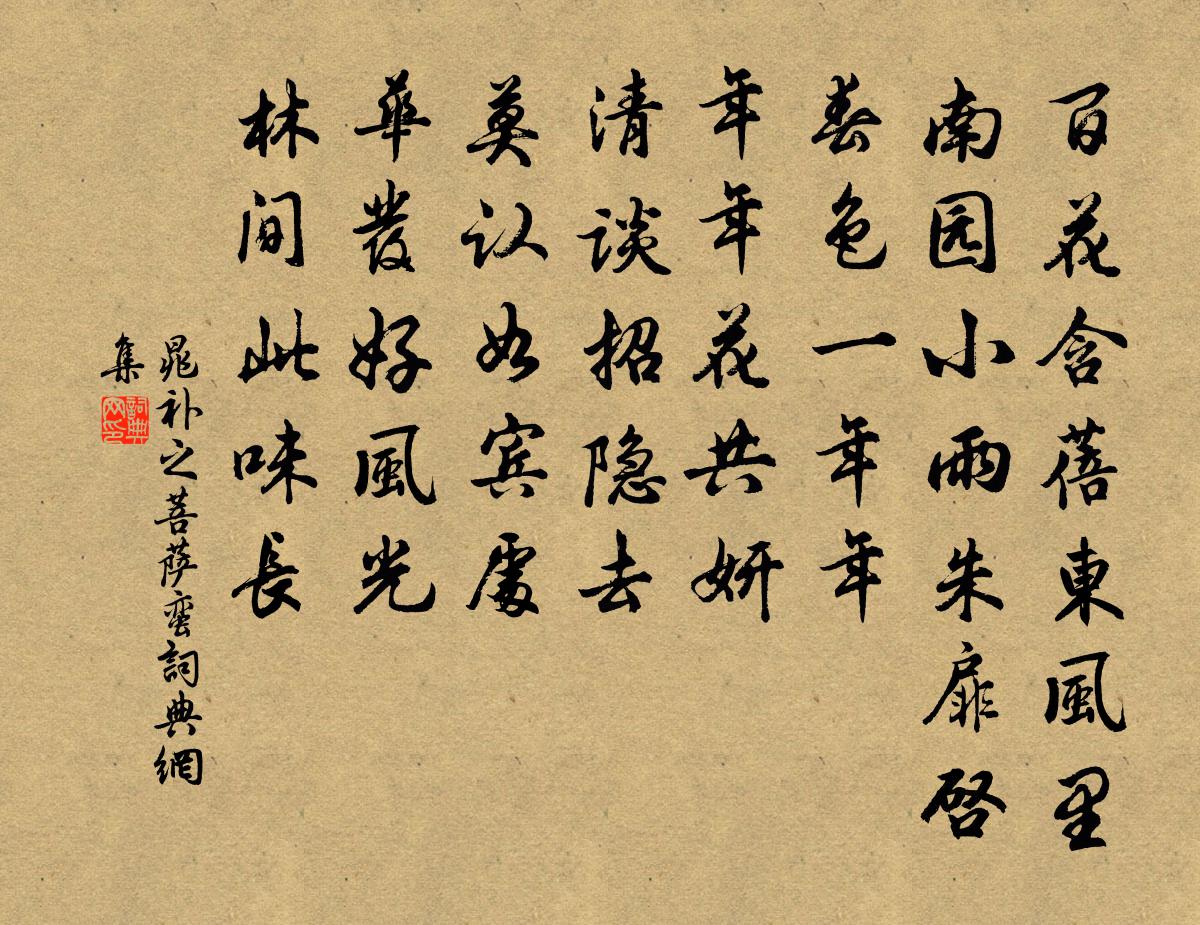 百花含蓓東風里
南园小雨朱扉啓
春色一年年
年年花共妍
清谈招隐去
莫认如宾處
華發好風光
林间此味長
晁补之菩萨蛮詞典網
集
詞典网印